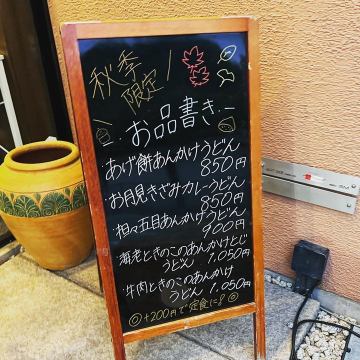 秋季
限定
お品書き
・あげ餅あんかけうどん
850円
・お月見きざみカレーうどん
850円
・担々五目あんかけうどん
900円
・海老ときのこのあんかけとじ
うどん 1,050円
・牛肉ときのこのあんかけ
うどん 1,050円
◎+200円で定食に!!◎